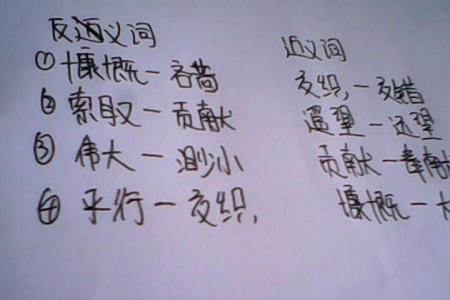 反义词
① 慷慨—吝啬
② 索取—贡献
③ 伟大—渺小
④ 平行—交织,
近义词
交织,—交错
遥望—远望
贡献—奉献
慷慨—大